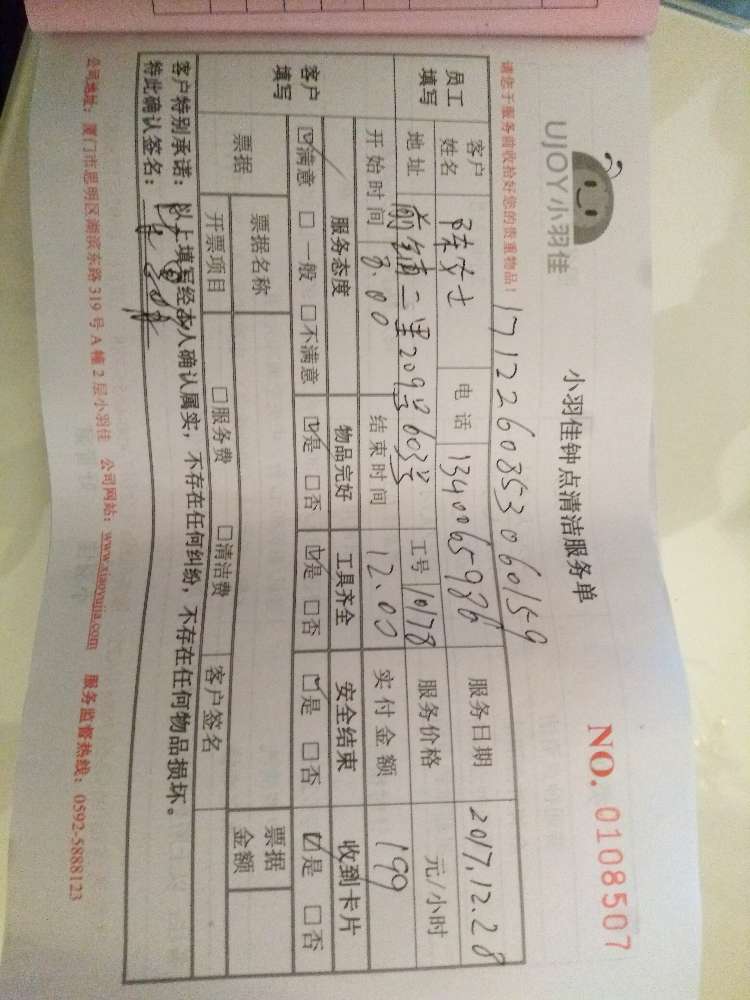 UJOY小羽佳
小羽佳钟点清洁服务单
NO. 0108507
请您于服务前收拾好您的贵重物品！
1712260853060159
员工填写
客户姓名 陈女士 电话 13400659736 服务日期 2017.12.28
地址 前埔二里209号603室 工号 10178 服务价格 元/小时
开始时间 8.00 结束时间 12.00 实付金额 199
客户填写
服务态度 物品完好 工具齐全 安全结束 收到卡片
☑满意 □一般 □不满意 ☑是 □否 ☑是 □否 ☑是 □否 ☑是 □否
票据 票据名称 票据金额
开票项目 □服务费 □清洁费 客户签名
客户特别承诺：以上填写经本人确认属实，不存在任何纠纷，不存在任何物品损坏。
特此确认签名：
公司地址：厦门市思明区湖滨东路319号A幢2层小羽佳 公司网站：www.xiaoyujia.com 服务监督热线：0592-5888123